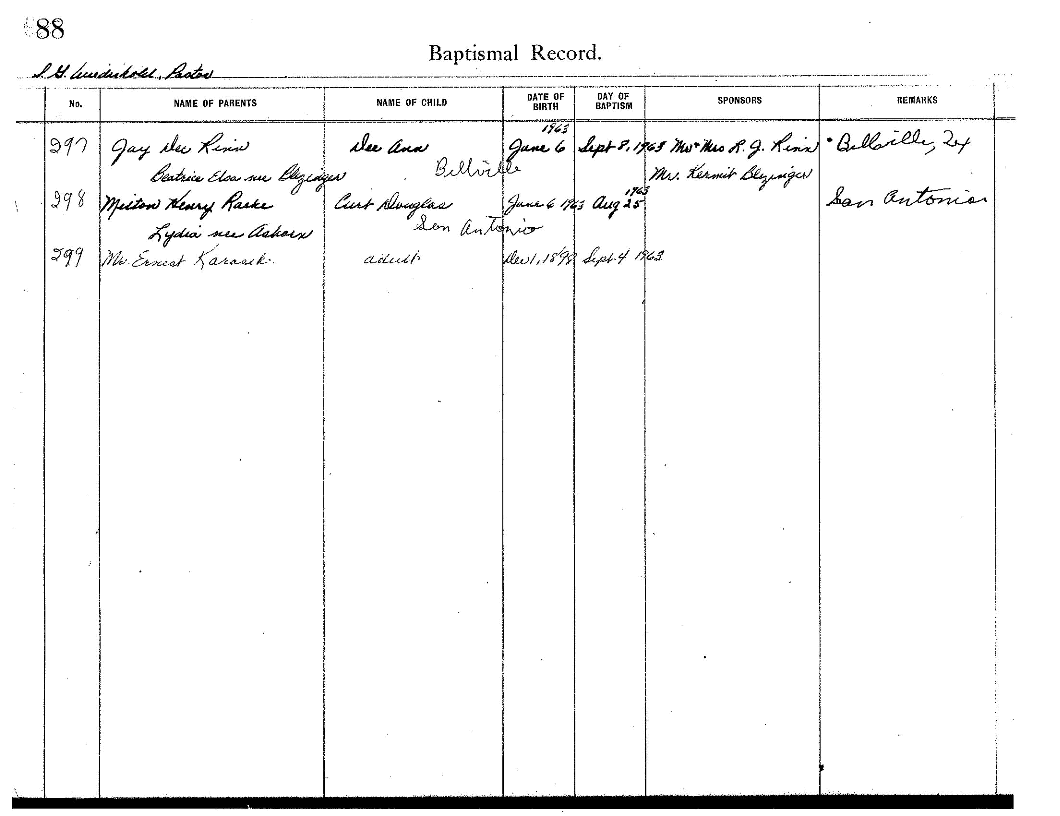 88
Baptismal Record.
Pastor
No. NAME OF PARENTS NAME OF CHILD DATE OF BIRTH DAY OF BAPTISM SPONSORS REMARKS
1963
297 Jay Dee Rinn Dee Ann June 6 Sept 8, 1963 Mr & Mrs R. J. Rinn Bellville, Tex
Beatrice Elsa nee Blezinger Bellville Mr. Kermit Blezinger
1963
298 Milton Henry Raske Curt Douglas June 6 1963 Aug 25 San Antonio
Lydia nee Ashorn San Antonio
299 Mr. Ernest Karasek adult Dec 1, 1898 Sept 4 1963